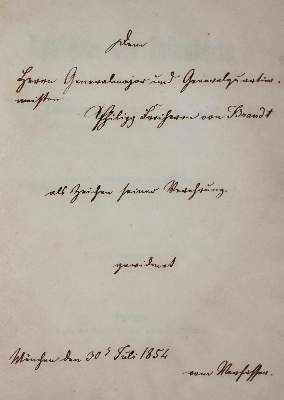 Dem
Herrn Generalmajor und Generalquartier-
meister
Philipp Freiherrn von Brandt
als Zeichen seiner Verehrung
gewidmet
München den 30t Juli 1854
vom Verfasser.